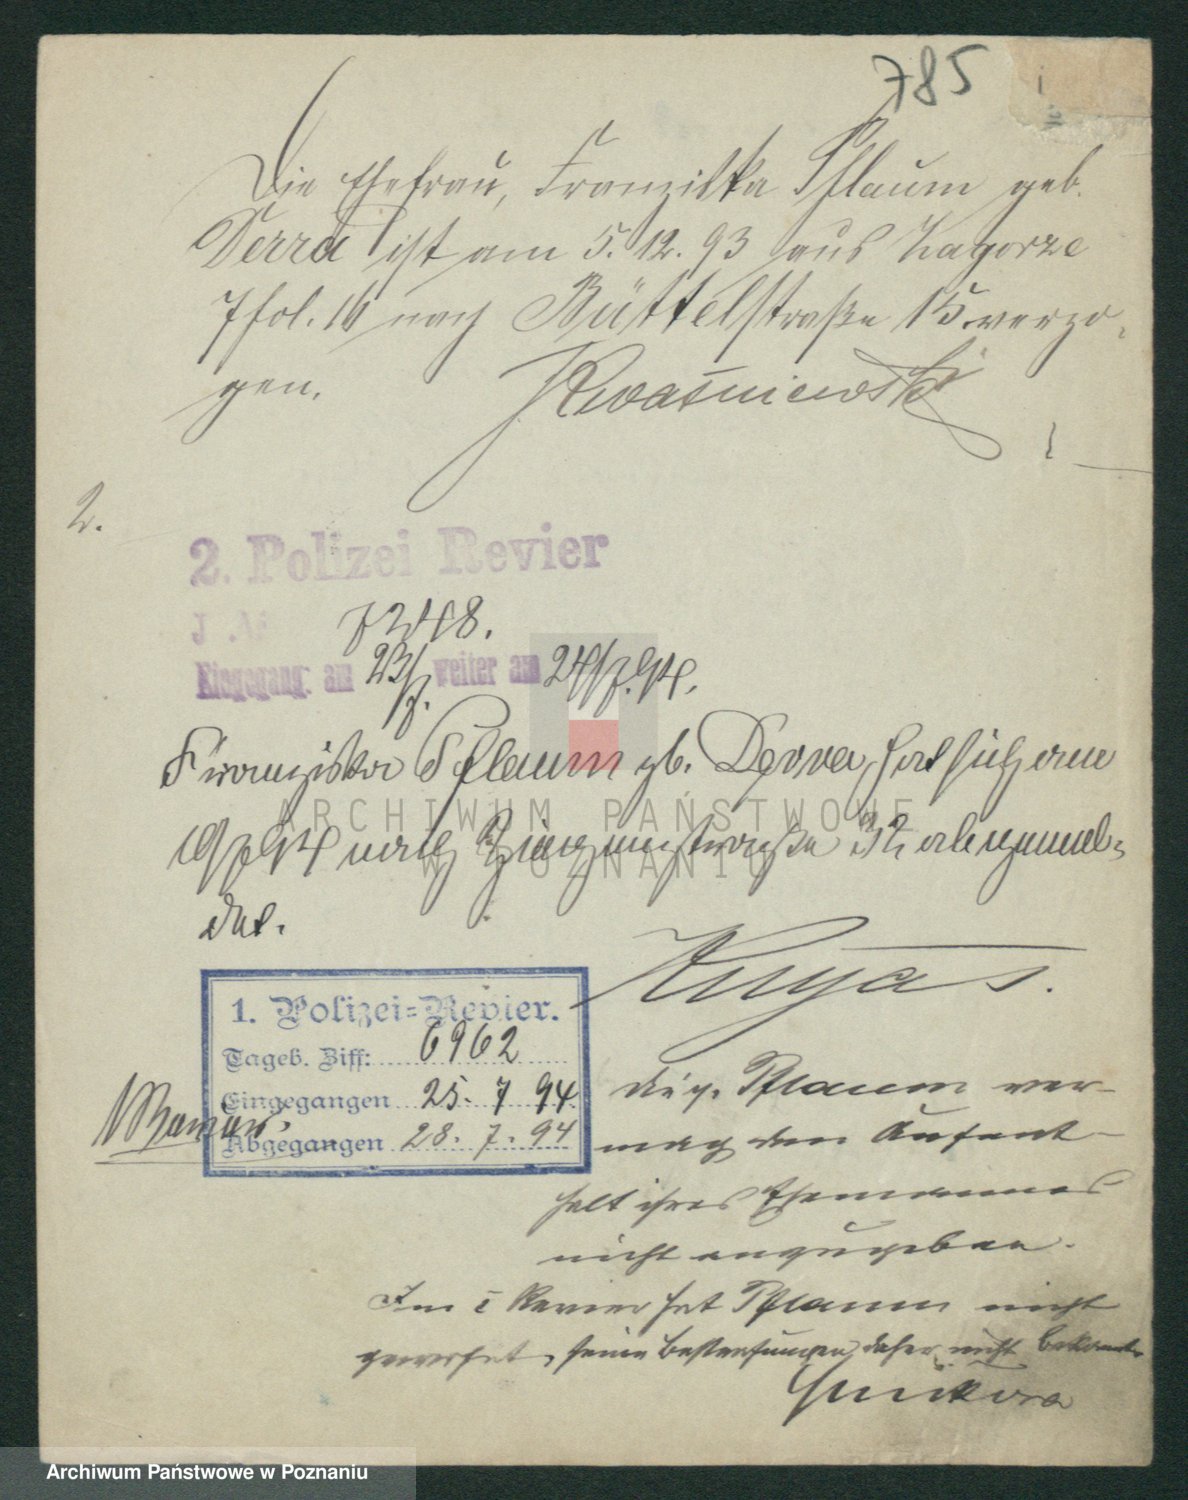 785
Die Ehefrau, Franziska Pflaum geb.
Derra ist am 5.12.93 aus Zagorze
7 fol. 16 nach Büttelstraße 15 verzo-
gen.
Kwasniewski
2.
2. Polizei Revier
J. No 7248.
Eingegang: am 23/7. weiter am 24/7.94.
Franziska Pflaum gb. Derra, hat sich am
nach 32 abgemel-
det.
1. Polizei-Revier.
Tageb. Ziff: 6962
Eingegangen 25. 7 94.
Abgegangen 28. 7. 94
Die p. Pflaum ver-
mag den Aufent-
halt ihres Ehemannes
nicht anzugeben.
Im I Revier hat Pflaum nicht
gewohnt, seine Bestrafungen daher nicht bekannt
ARCHIWUM PAŃSTWOWE
W POZNANIU
Archiwum Państwowe w Poznaniu